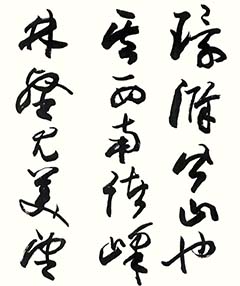 环滁皆山也
其西南诸峰
林壑尤美望